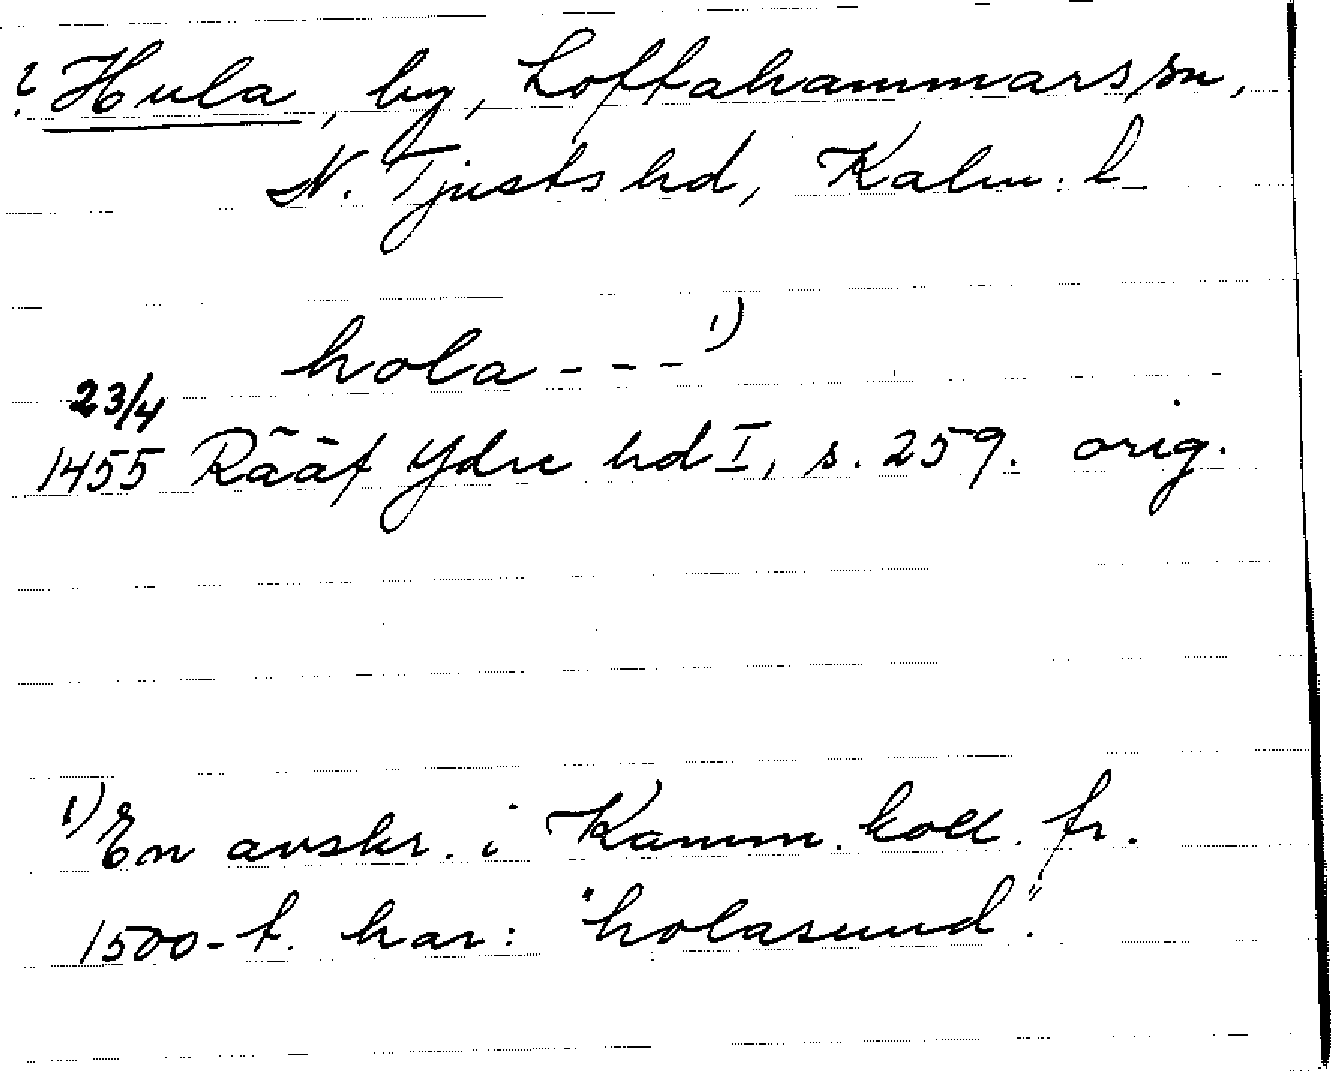 ? Hula, by, Loftahammars sn,
N. Tjusts hd, Kalm. l
hola - - - 1)
23/4
1455 Rääf Ydre hd I, s. 259. orig.
1) En avskr. i Kamm. koll. fr.
1500-t. har: "holasund".